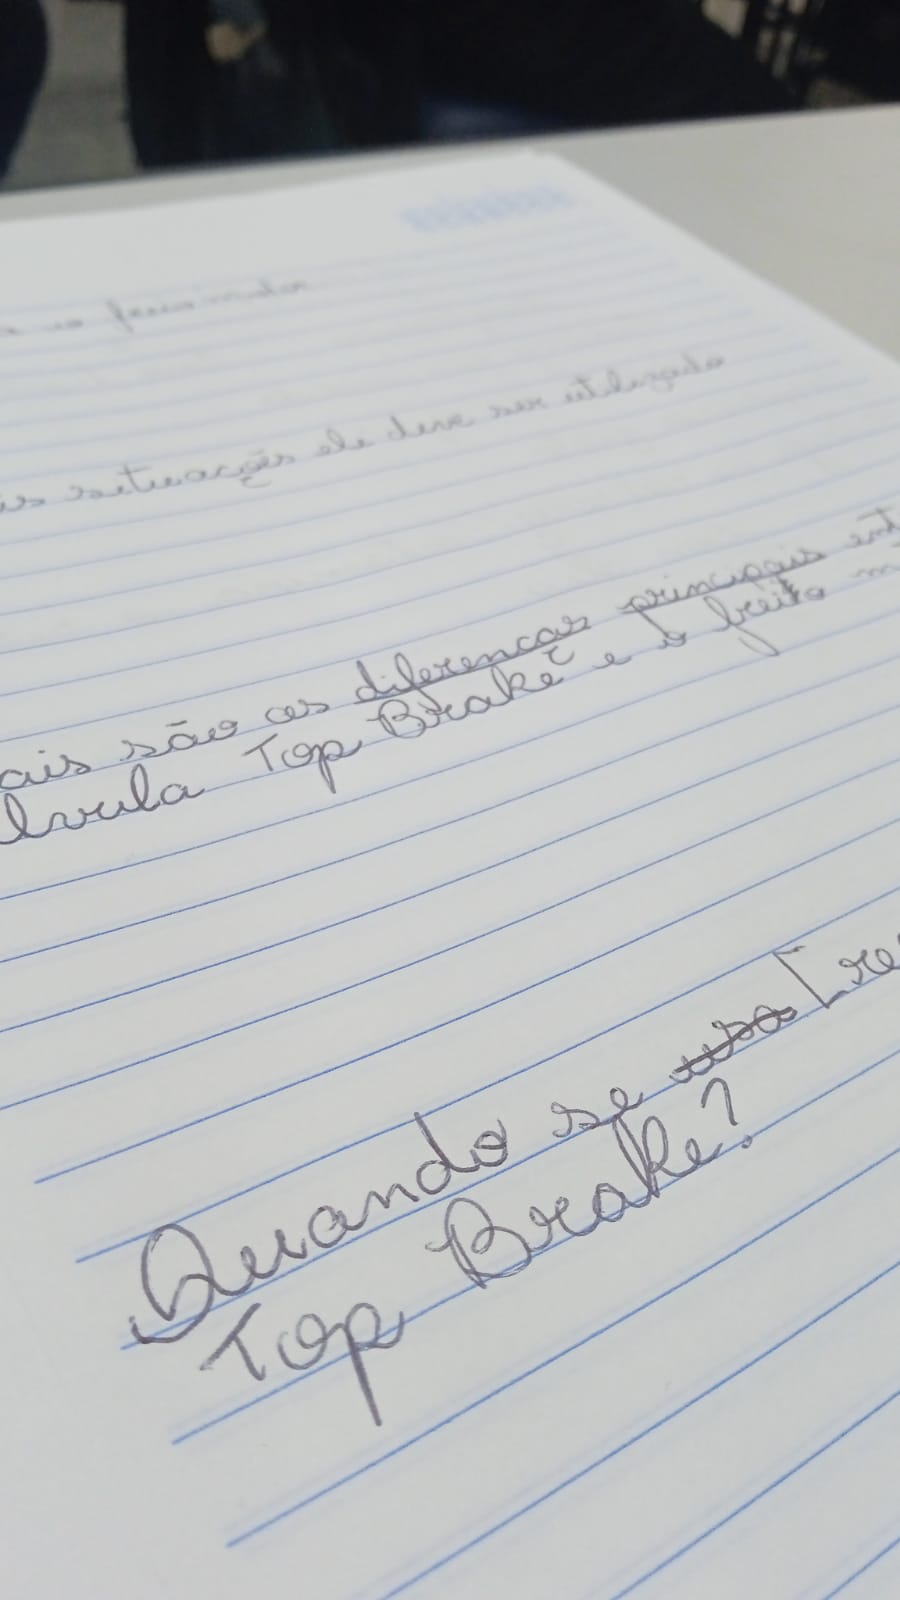 situações ele deve ser utilizado
ais são as diferenças principais ent
lvula Top Brake e o freio m
Quando se [re
Top Brake?